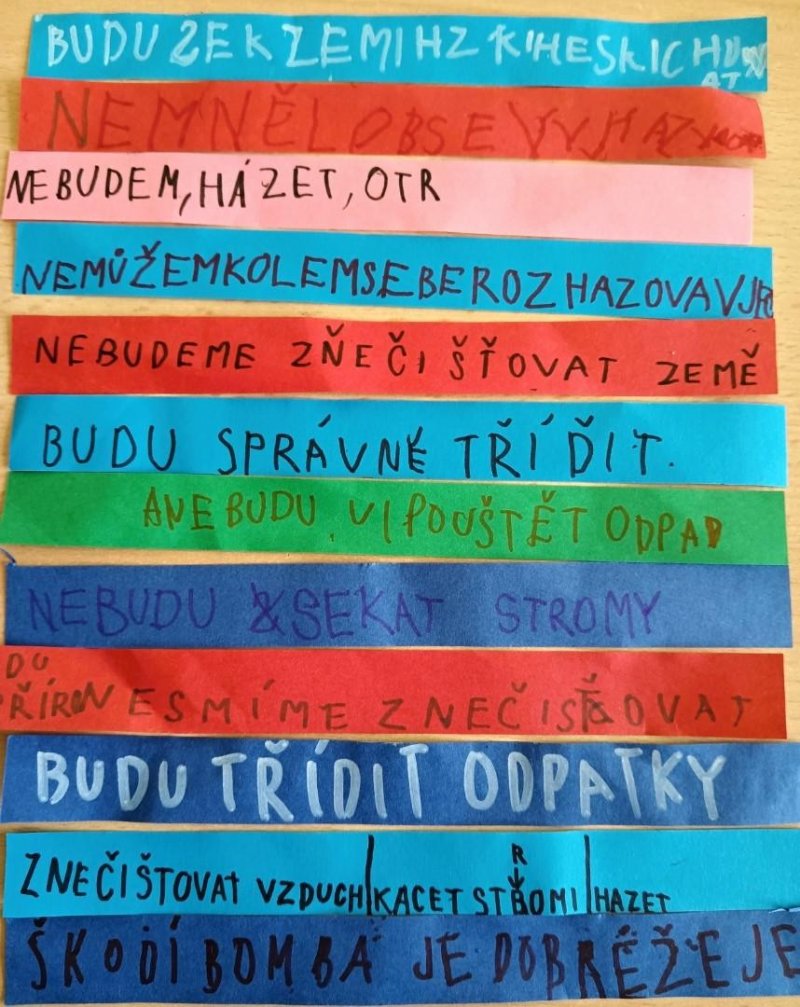 BUDU ZEK ZEMI HZ KIHESKIC HUVAT
NEMNĚL OBSE VVHAZ
NEBUDEM, HÁZET, OTR
NEMŮŽEMKOLEMSEBEROZHAZOVAVJ
NEBUDEME ZŇEČIŠŤOVAT ZEMĚ
BUDU SPRÁVNĚ TŘÍĎIT.
ANEBUDU VIPOUŠTĚT ODPAD
NEBUDU SEKAT STROMY
DU
PŘÍRO NESMÍME ZNEČISŤOVAT
BUDU TŘÍDIT ODPATKY
R
ZNEČIŠTOVAT VZDUCH KACET STROMI HAZET
ŠKODÍ BOMBA JE DOBRÉŽE JE